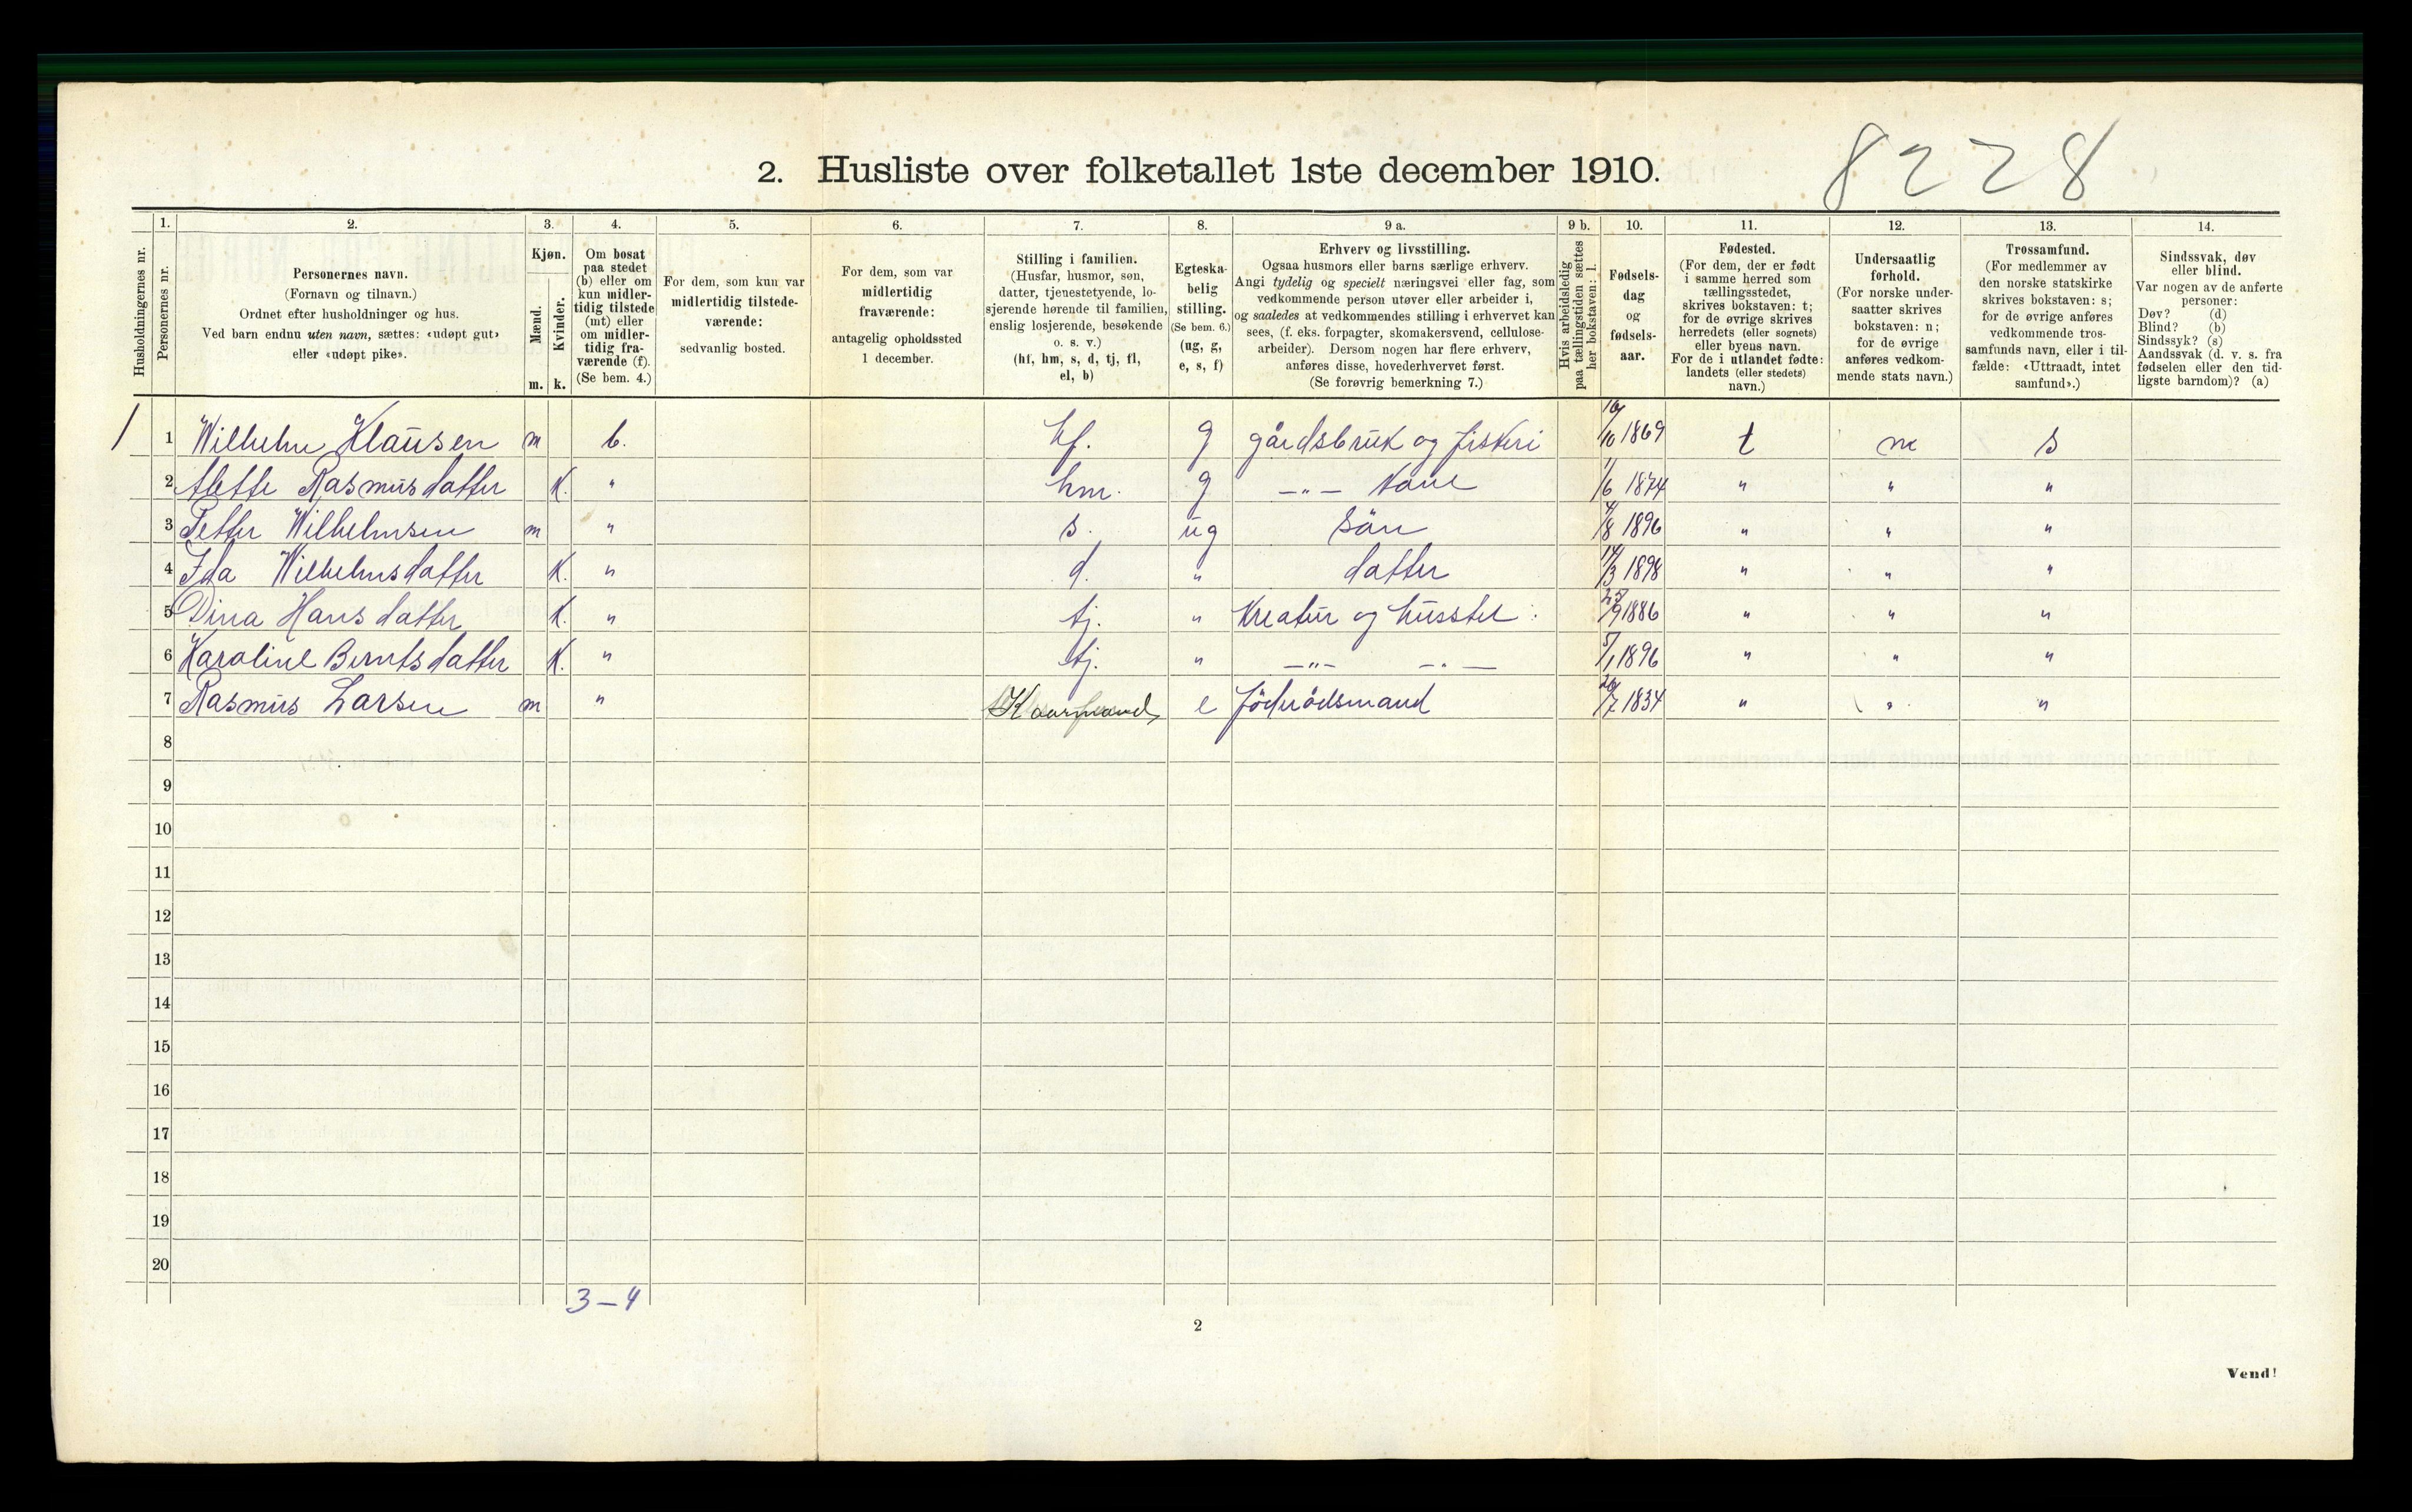 8228
2. Husliste over folketallet 1ste december 1910.
Husholdningernes nr.
1.
Personernes nr.
2.
Personernes navn.
(Fornavn og tilnavn.)
Ordnet efter husholdninger og hus.
Ved barn endnu uten navn, sættes: «udøpt gut»
eller «udøpt pike».
3.
Kjøn.
Mænd.
Kvinder.
m. k.
4.
Om bosat
paa stedet
(b) eller om
kun midler-
tidig tilstede
(mt) eller
om midler-
tidig fra-
værende (f).
(Se bem. 4.)
5.
For dem, som kun var
midlertidig tilstede-
værende:
sedvanlig bosted.
6.
For dem, som var
midlertidig
fraværende:
antagelig opholdssted
1 december.
7.
Stilling i familien.
(Husfar, husmor, søn,
datter, tjenestetyende, lo-
sjerende hørende til familien,
enslig losjerende, besøkende
o. s. v.)
(hf, hm, s, d, tj, fl,
el, b)
8.
Egteska-
belig
stilling.
(Se bem. 6.)
(ug, g,
e, s, f)
9 a.
Erhverv og livsstilling.
Ogsaa husmors eller barns særlige erhverv.
Angi tydelig og specielt næringsvei eller fag, som
vedkommende person utøver eller arbeider i,
og saaledes at vedkommendes stilling i erhvervet kan
sees, (f. eks. forpagter, skomakersvend, cellulose-
arbeider). Dersom nogen har flere erhverv,
anføres disse, hovederhvervet først.
(Se forøvrig bemerkning 7.)
9 b.
Hvis arbeidsledig
paa tællingstiden sættes
her bokstaven: l.
10.
Fødsels-
dag
og
fødsels-
aar.
11.
Fødested.
(For dem, der er født
i samme herred som
tællingsstedet,
skrives bokstaven: t;
for de øvrige skrives
herredets (eller sognets)
eller byens navn.
For de i utlandet fødte:
landets (eller stedets)
navn.)
12.
Undersaatlig
forhold.
(For norske under-
saatter skrives
bokstaven: n;
for de øvrige
anføres vedkom-
mende stats navn.)
13.
Trossamfund.
(For medlemmer av
den norske statskirke
skrives bokstaven: s;
for de øvrige anføres
vedkommende tros-
samfunds navn, eller i til-
fælde: «Uttraadt, intet
samfund».)
14.
Sindssvak, døv
eller blind.
Var nogen av de anførte
personer:
Døv? (d)
Blind? (b)
Sindssyk? (s)
Aandssvak (d. v. s. fra
fødselen eller den tid-
ligste barndom)? (a)
1 1 Wilhelm Klausen m b. hf. g gårdsbruk og fiskeri 16/10 1869 t n s
2 Alette Rasmusdatter K. " hm. g —"— kone 1/6 1874 " " "
3 Petter Wilhelmsen m " s. ug sön 4/8 1896 " " "
4 Ida Wilhelmsdatter K. " d. " datter 14/3 1898 " " "
5 Dina Hansdatter K. " tj. " Kreatur og husstel. 25/9 1886 " " "
6 Karoline Berntsdatter K. " tj. " —"— —"— 5/1 1896 " " "
7 Rasmus Larsen m " Kaarmand e föderådsmand 26/7 1834 " " "
8
9
10
11
12
13
14
15
16
17
18
19
20
3–4
2
Vend!